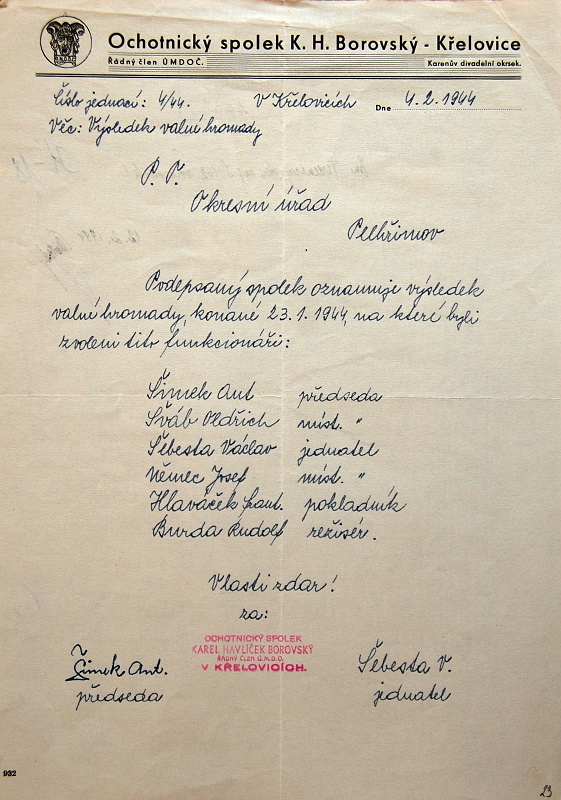 Ochotnický spolek K. H. Borovský - Křelovice
Řádný člen ÚMDOČ.
Karenův divadelní okrsek.
Číslo jednací: 4/44. V Křelovicích Dne 4.2.1944
Věc: Výsledek valné hromady
P. T.
Okresní úřad
Pelhřimov
Podepsaný spolek oznamuje výsledek
valné hromady, konané 23.1.1944, na které byli
zvoleni tito funkcionáři:
Šimek Ant předseda
Šváb Oldřich míst. "
Šebesta Václav jednatel
Němec Josef míst. "
Hlaváček frant. pokladník
Burda Rudolf režisér.
Vlasti zdar!
za:
OCHOTNICKÝ SPOLEK
KAREL HAVLÍČEK BOROVSKÝ
ŘÁDNÝ ČLEN Ú.M.D.O.
V KŘELOVICÍCH.
Šimek Ant.
předseda
Šebesta V.
jednatel
932
23